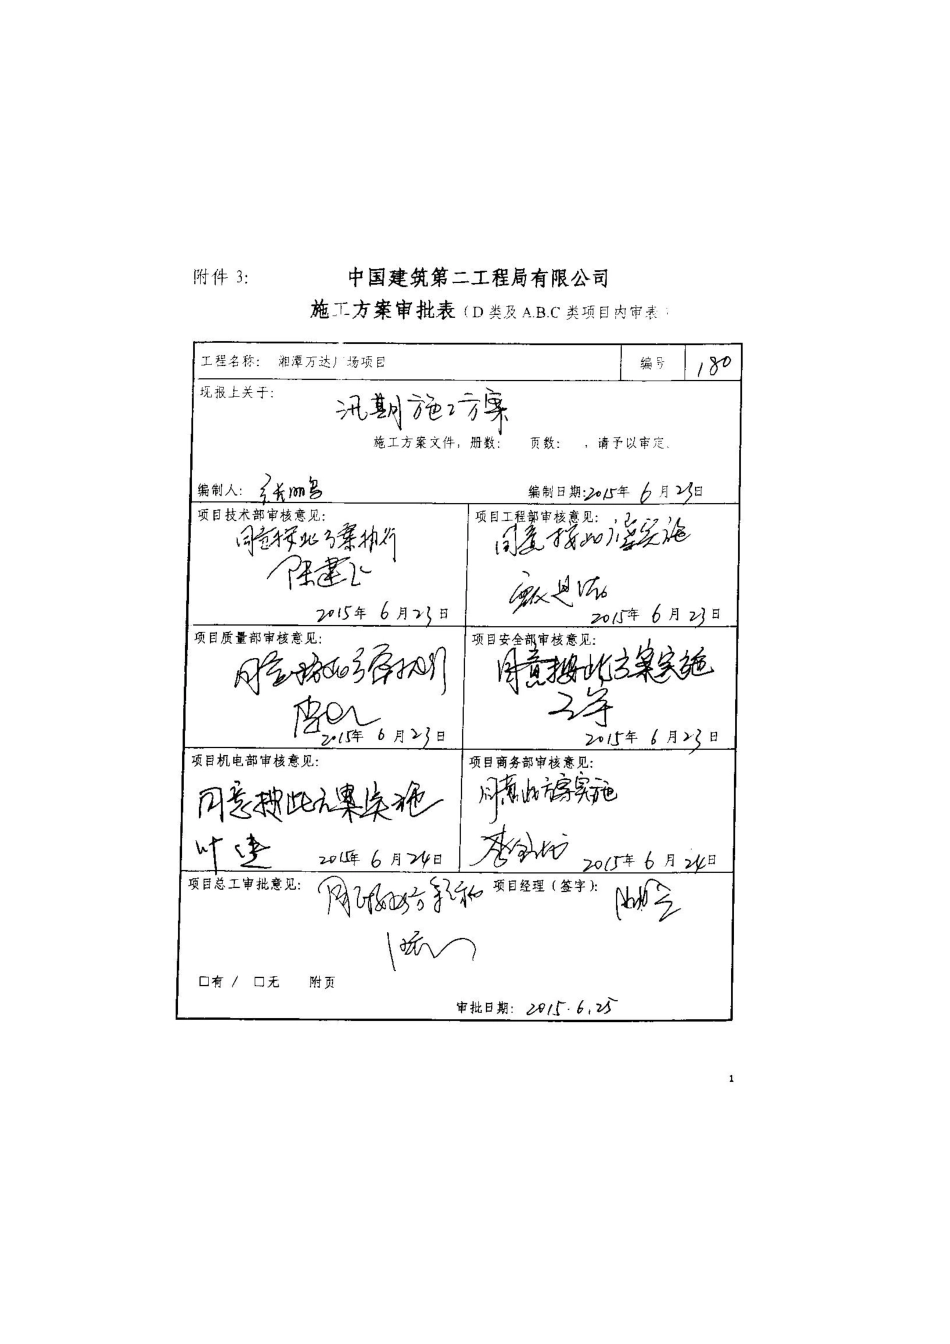 附件 3:
中国建筑第二工程局有限公司
施工方案审批表（D 类及 A.B.C 类项目内审表）
工程名称： 湘潭万达广场项目 编号 180
现报上关于：
汛期施工方案
施工方案文件，册数： 页数： ，请予以审定.
编制人： 编制日期:2015年 6月23日
项目技术部审核意见：
同意按此方案执行
2015年 6月23日
项目工程部审核意见：
同意按此方案实施
2015年 6月23日
项目质量部审核意见：
同意按此方案执行
2015年 6月23日
项目安全部审核意见：
同意按此方案实施
2015年 6月23日
项目机电部审核意见：
同意按此方案实施
叶建
2015年 6月24日
项目商务部审核意见：
同意此方案实施
2015年 6月24日
项目总工审批意见：
项目经理（签字）：
□有 / □无 附页
审批日期： 2015.6.25
1